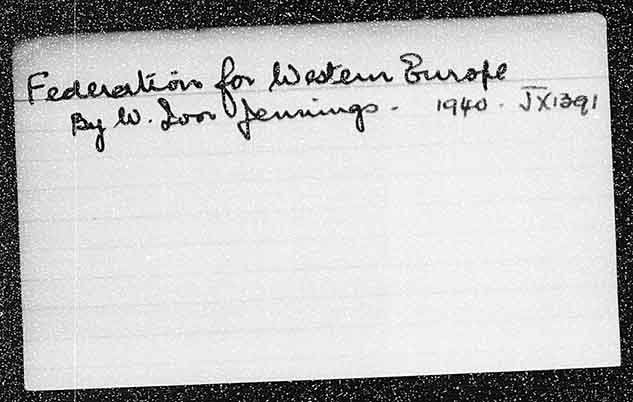 Federation for Western Europe
By W. Ivor Jennings. 1940. JX1391